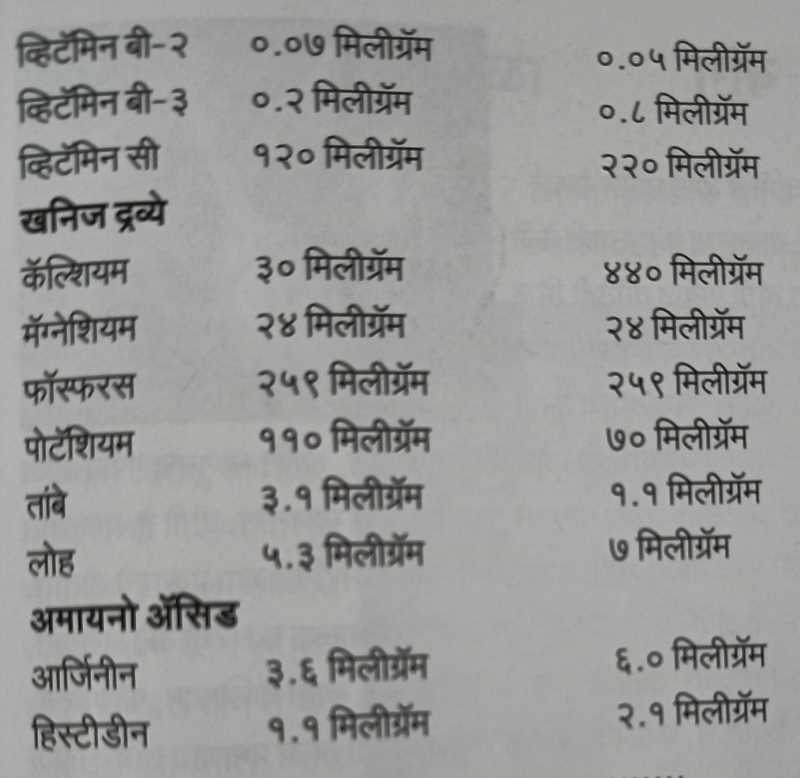 व्हिटॅमिन बी-२ ०.०७ मिलीग्रॅम ०.०५ मिलीग्रॅम
व्हिटॅमिन बी-३ ०.२ मिलीग्रॅम ०.८ मिलीग्रॅम
व्हिटॅमिन सी १२० मिलीग्रॅम २२० मिलीग्रॅम
खनिज द्रव्ये
कॅल्शियम ३० मिलीग्रॅम ४४० मिलीग्रॅम
मॅग्नेशियम २४ मिलीग्रॅम २४ मिलीग्रॅम
फॉस्फरस २५९ मिलीग्रॅम २५९ मिलीग्रॅम
पोटॅशियम ११० मिलीग्रॅम ७० मिलीग्रॅम
तांबे ३.१ मिलीग्रॅम १.१ मिलीग्रॅम
लोह ५.३ मिलीग्रॅम ७ मिलीग्रॅम
अमायनो ॲसिड
आर्जिनीन ३.६ मिलीग्रॅम ६.० मिलीग्रॅम
हिस्टीडीन १.१ मिलीग्रॅम २.१ मिलीग्रॅम